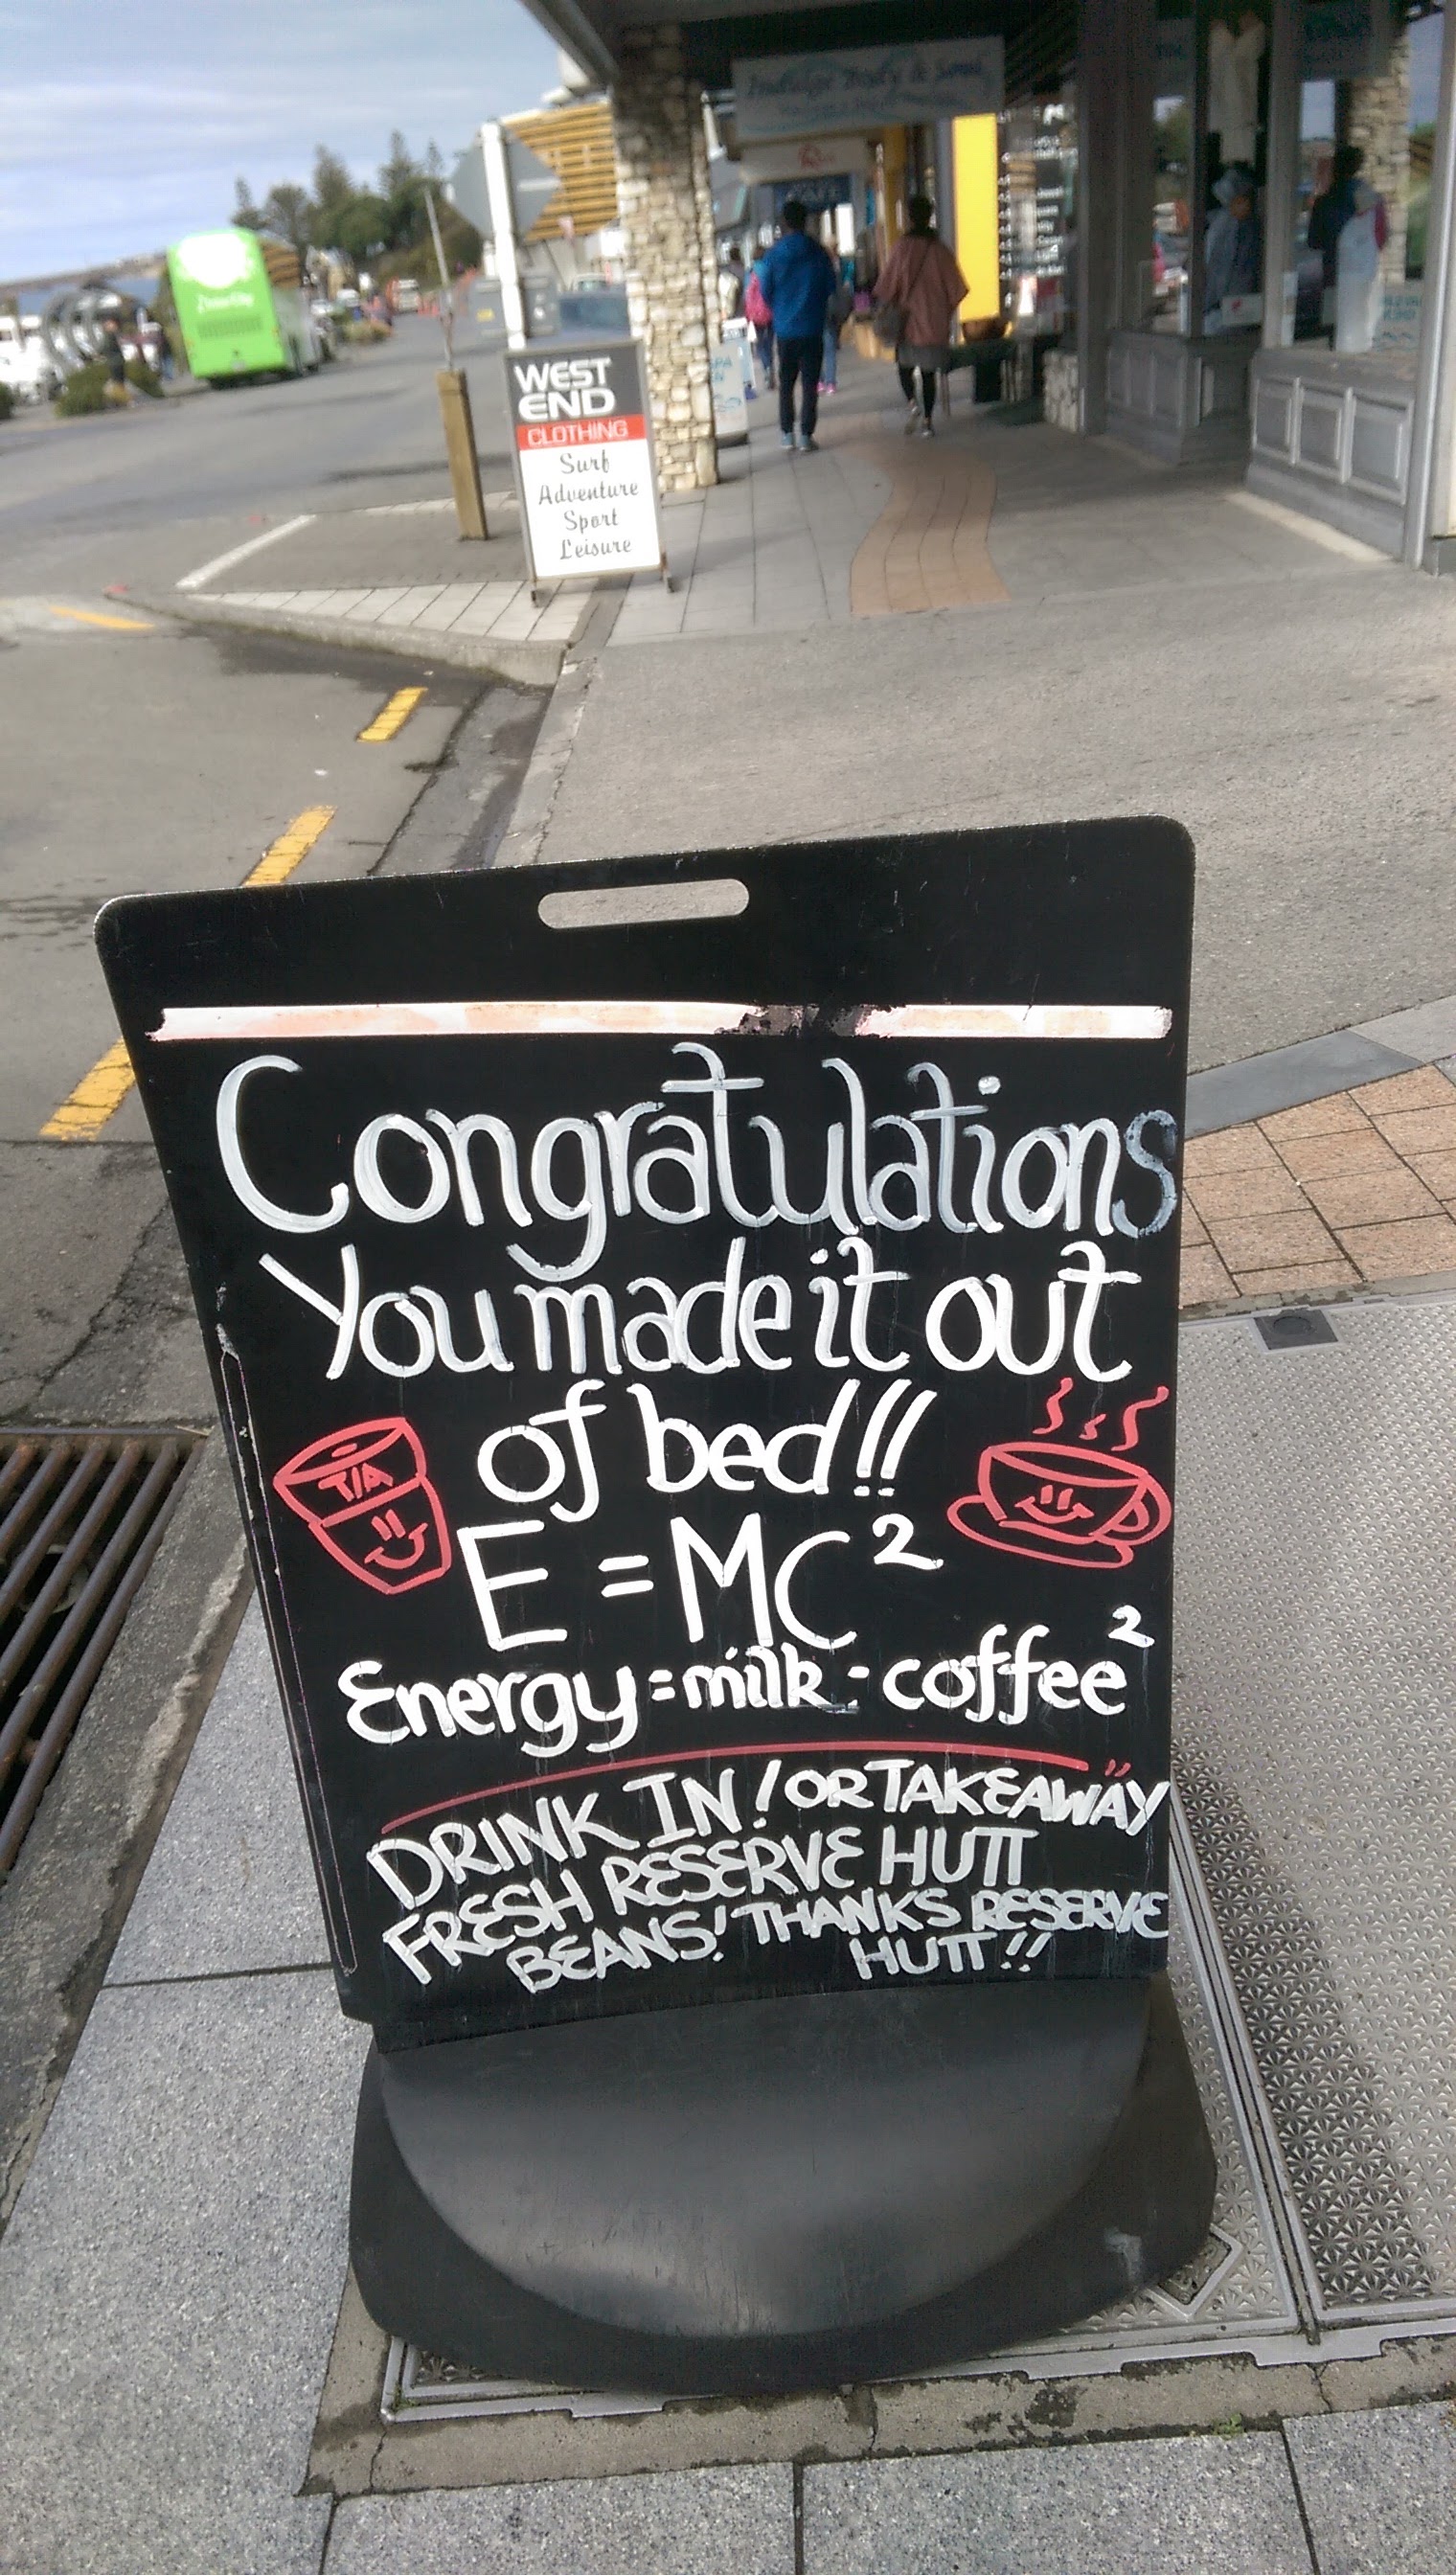 WEST
END
CLOTHING
Surf
Adventure
Sport
Leisure
Congratulations
You made it out
of bed!!!
T/A
E = MC²
Energy = milk · coffee²
DRINK IN! OR TAKEAWAY
FRESH RESERVE HUTT
BEANS! THANKS RESERVE
HUTT!!